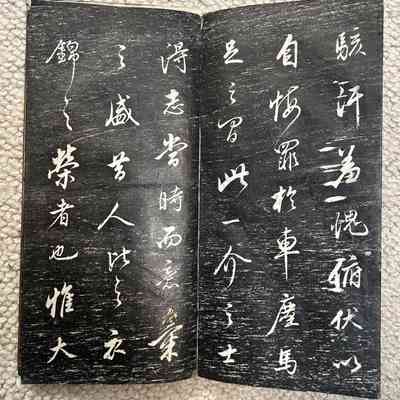 駭汗羞愧俯伏以
自悔罪於車塵馬
足之間此一介之士
得志當時而意氣
之盛昔人比之衣
錦之榮者也惟大